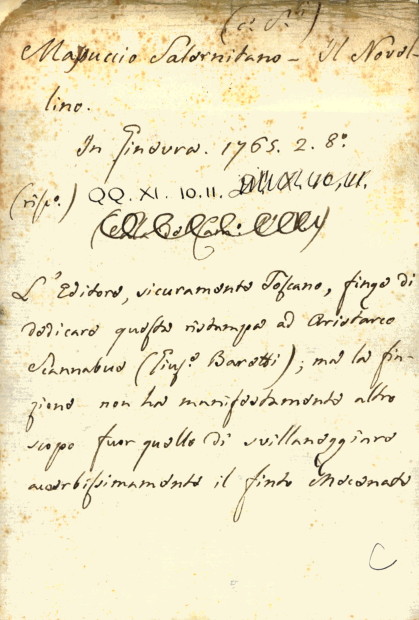 Masuccio Salernitano - Il Novel-
lino.
In Ginevra. 1765. 2. 8.°
(rist.°) QQ. XI. 10.11.
L'Editore, sicuramente Toscano, finge di
dedicare questa ristampa ad Aristarco
Scannabue (Gius.e Baretti); ma la fin-
zione non ha manifestamente altro
scopo fuor quello di svillaneggiare
acerbissimamente il finto Mecenate
C